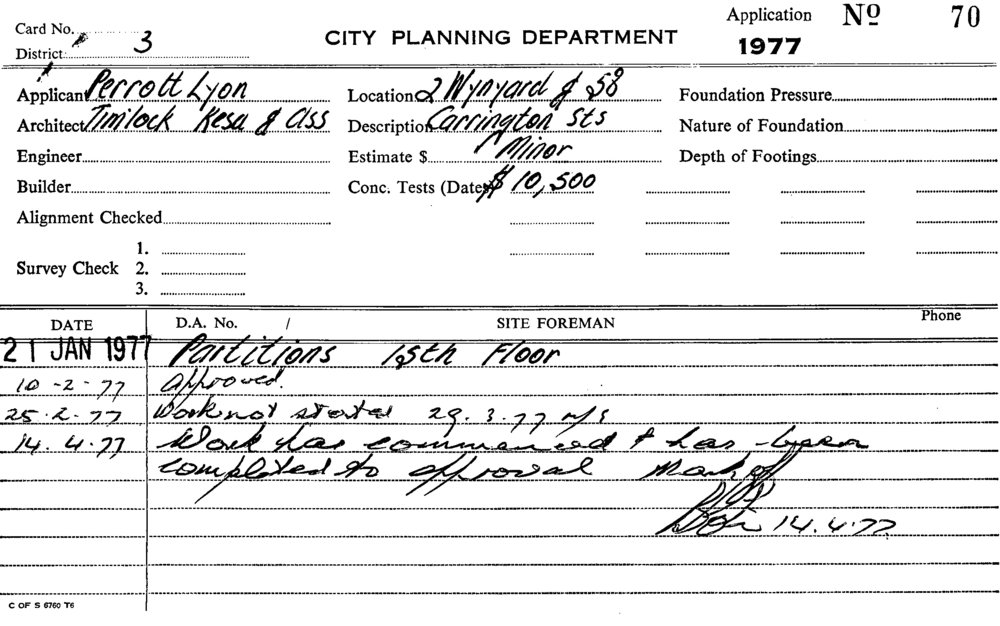 Card No.
Application No 70
District 3
CITY PLANNING DEPARTMENT
1977
Applicant Perrott Lyon
Location 2 Wynyard & 58
Foundation Pressure
Architect Timlock Kesa & Ass
Description Carrington Sts
Nature of Foundation
Engineer
Estimate $ Minor
Depth of Footings
Builder
Conc. Tests (Dates) $ 10,500
Alignment Checked
1.
Survey Check 2.
3.
DATE D.A. No. / SITE FOREMAN Phone
21 JAN 1977 Partitions 15th Floor
10-2-77 Approved.
25.2.77 Work not started 29.3.77
14.4.77 Work has commenced & has been
completed to approval Mark off
14.4.77
C OF S 6760 T6